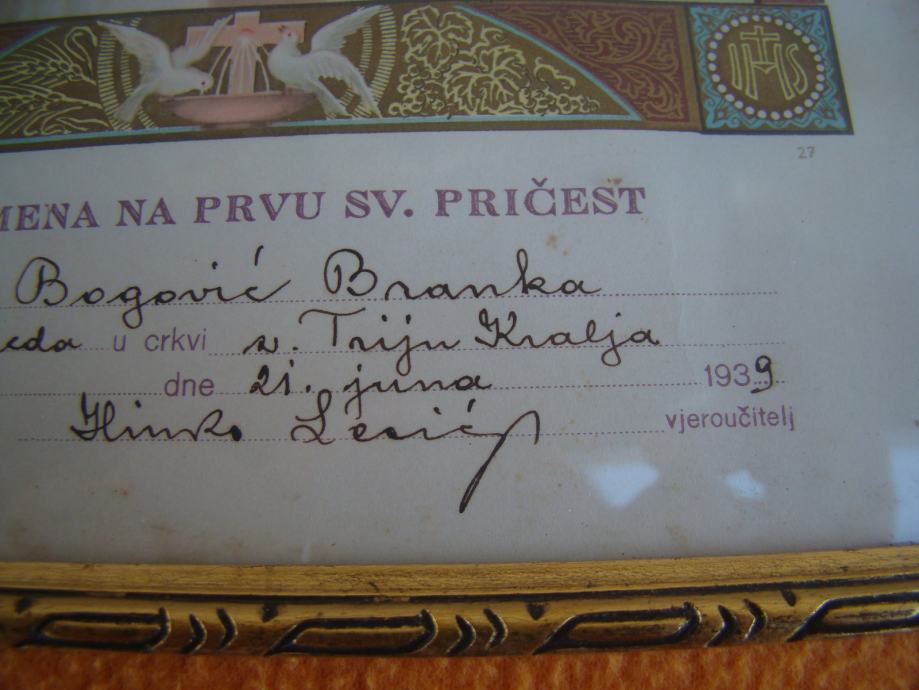 IHS
27
MENA NA PRVU SV. PRIČEST
Bogović Branka
eda u crkvi sv. Triju Kralja
dne 21. juna 1939
Hinko Lesić vjeroučitelj